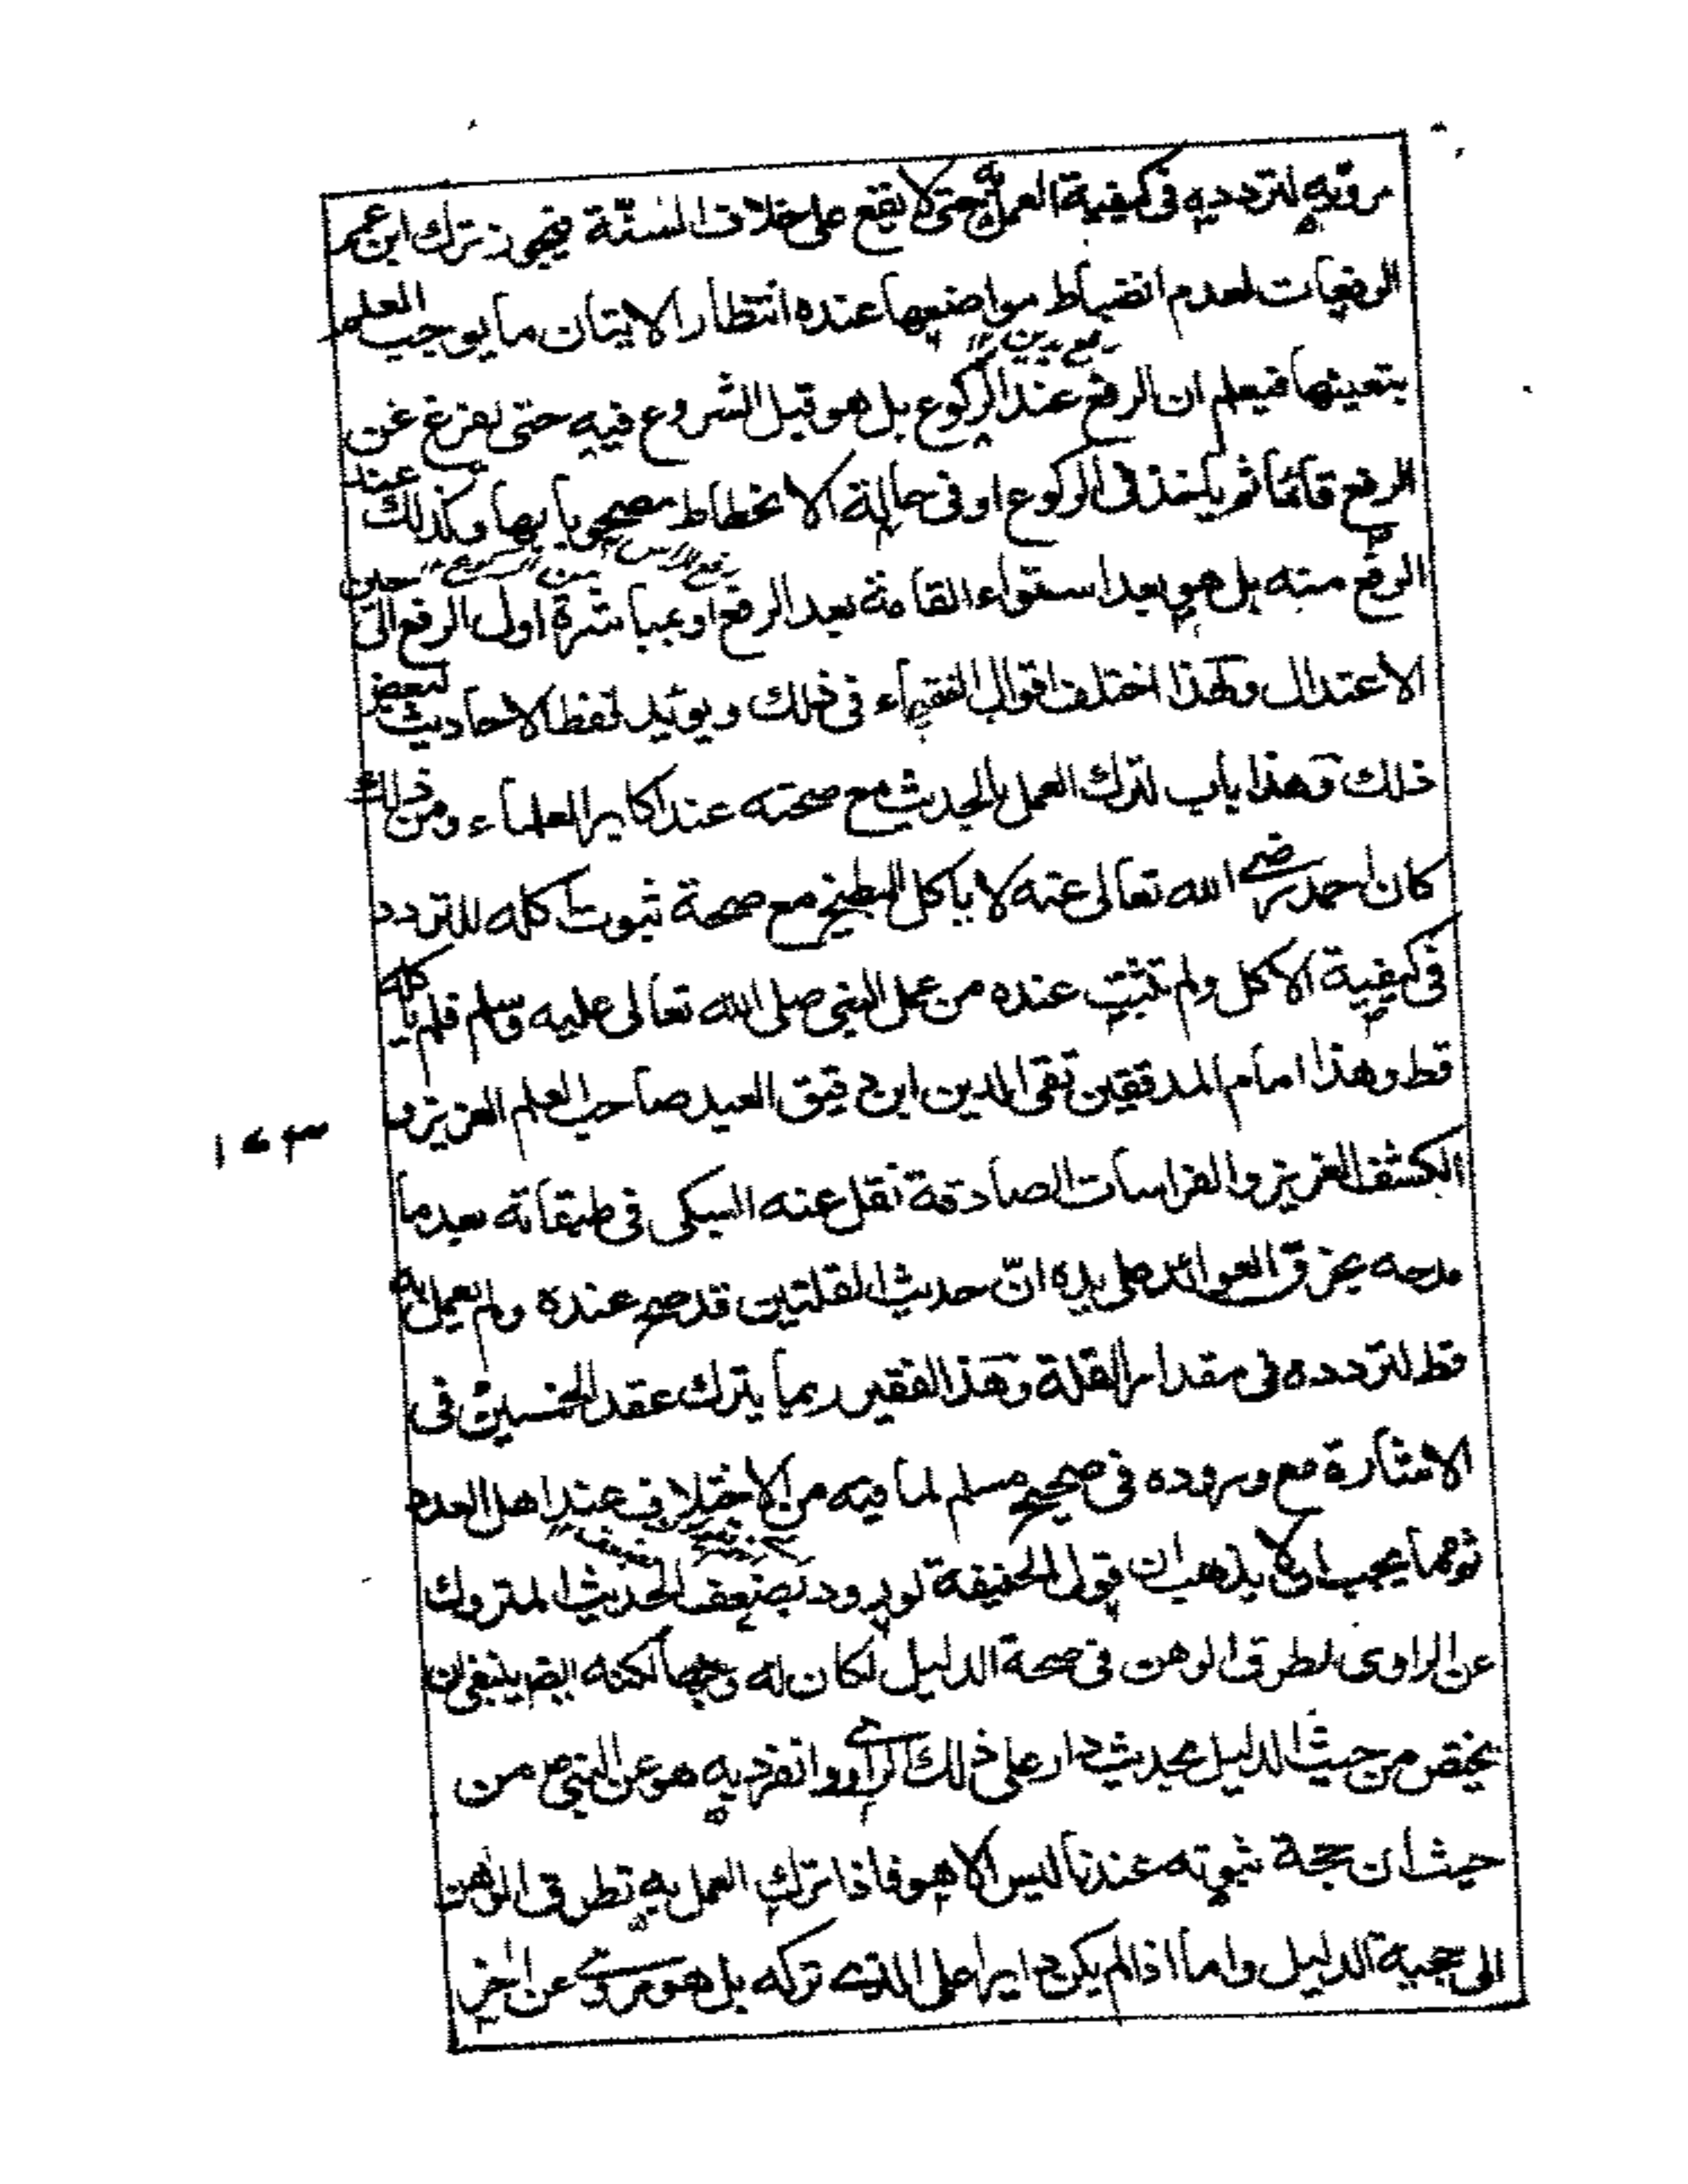 مرويه لتردد به فى كيفية العمل به حتى لا يقع على خلاف السنّة فيجوز ترك ابن عمر
الرفعات لعدم انضباط مواضعها عنده انتظار الاتيان ما يوجب العلم
بتعينها فيعلم ان الرفع عند الركوع بل هو قبل الشروع فيه حتى يفرغ عن
رفع يدين ١٢
الرفع قائما ثم ياخذ فى الركوع او فى حالة الانحطاط مصحوبا بها وكذلك عند
الرفع منه بل هو بعد استواء القامة بعد الرفع او بمباشرة اول الرفع الى حين
رفع الراس من الركوع ١٢
الاعتدال ولهذا اختلف اقوال الفقهاء فى ذلك ويؤيد لفظ الاحاديث لبعض
ذلك وهذا باب لترك العمل بالحديث مع صحته عند اكابر العلماء ومن ذلك
كان احمد رضى الله تعالى عنه لا ياكل البطيخ مع صحة ثبوت اكله للتردد
فى كيفية الاكل ولم تثبت عنده من عمل النبى صلى الله تعالى عليه وسلم فلم ياكله
قط وهذا امام المدققين تقى الدين ابن دقيق العيد صاحب العلم الغزير و
الكشف العزيز والفراسات الصادقة نقل عنه السبكى فى طبقاته بعد ما
مدحه بخرق العوائد على يده انّ حديث القلتين قد صح عنده ولم يعمل به
قط لتردده فى مقدار القلة وهذا الفقير ربما يترك عقد الخمسين فى
الاشارة مع وروده فى صحيح مسلم لما فيه من الاختلاف عند اهل العدد
ثم مما يجب ان لا يذهب ان قول الحنيفة لو يرود بضعف الحديث المتروك
عن الراوى لطرق الوهن فى صحة الدليل لكان له وجها لكنه ايضا ينبغى ان
يختص من حيث الدليل بحديث دار على ذلك الراوى وانفرد به هو عن النبى ع من
حيث ان حجة ثبوته عندنا ليس الا هو فاذا ترك العمل به تطرق الوهن
الى حجية الدليل واما اذا لم يكن دايرا على الذى تركه بل هو مروى عن اخر
١٤٣